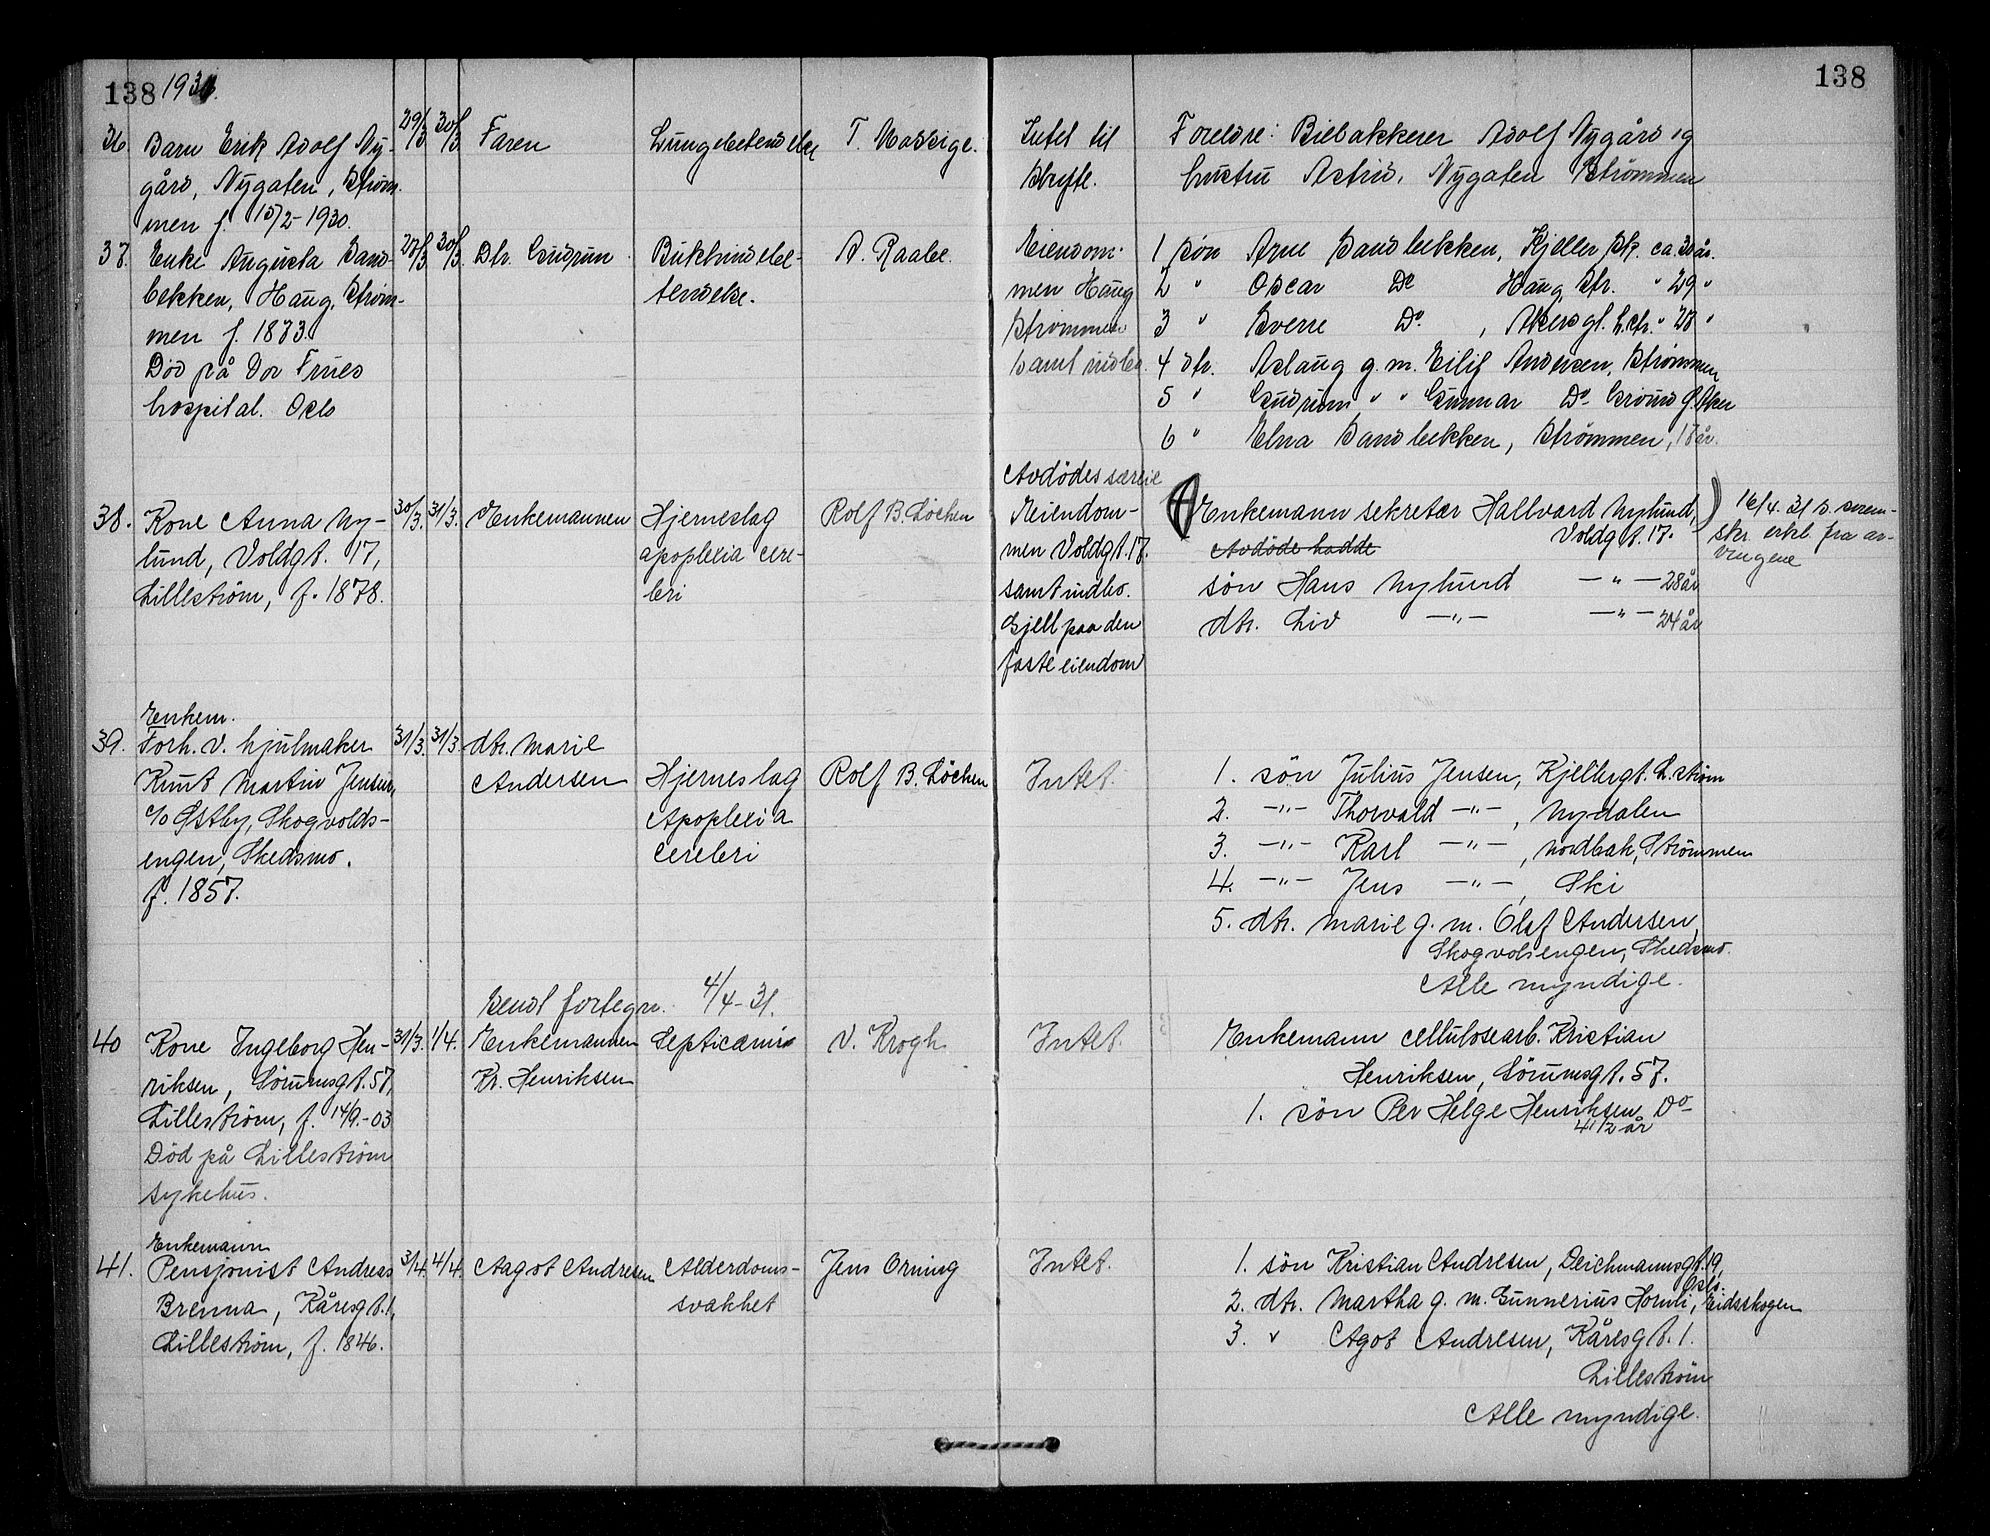 138 1931.
138
36. Barn Erik Adolf Ny-
gård, Nygaten, Strøm-
men f. 15/2-1930.
29/3 30/3 Faren
Lungebetendelse
T.
Intet til
skifte.
Foreldre: Adolf Nygård og
hustru Astrid, Nygaten Strømmen
37. Enke Augusta Sand-
bekken, Haug, Strøm-
men f. 1873.
Død på Vor Frues
hospital. Oslo
27/3 30/3 Dtr. Gudrun
Bukhindebe-
tendelse.
A. Raabe.
Eiendom-
men Haug
Strømmen
samt indbo.
1 søn Arne Sandbekken, Kjeller Sk. ca. 30 år.
2 " Oscar Do Haug, Str. " 29 "
3 " Sverre Do , Akersgt. L.str. " 28 "
4 dtr. Aslaug g. m. Eilif Andersen, Strømmen
5 " Gudrun " " Gunnar Do
6 " Elna Sandbekken, Strømmen, 18 år.
38. Kone Anna Ny-
lund, Voldgt. 17,
Lillestrøm, f. 1878.
30/3. 31/3. Enkemannen
Hjerneslag
apoplexia cere-
bri
Rolf B. Løchen
Avdødes særeie
Eiendom-
men Voldgt. 17.
samt indbo.
Gjeld paa den
faste eiendom
Enkemann sekretær Hallvard Nylund,
Voldgt. 17.
Avdøde hadde
søn Hans Nylund —"— 28 år
dtr. Liv —"— —"— 24 år
16/4. 31 s.
skr. erkl. fra ar-
vingene
39. Enkem.
Forh. v. hjulmaker
Knut Martin Jensen,
c/o Østby, Skogvolds-
engen, Skedsmo.
f. 1857.
31/3. 31/3. dtr. Marie
Andersen
Hjerneslag
Apoplexia
cerebri
Rolf B. Løchen
Intet.
1. søn Julius Jensen, Kjellergt. L.strøm
2. —"— Thorvald —"—, Nydalen
3. —"— Karl —"—, Nordbak, Strømmen
4. —"— Jens —"—, Ski
5. dtr. Marie g. m. Olaf Andersen,
Skogvolsengen, Skedsmo.
Alle myndige.
Sendt fortegn. 4/4-31.
40 Kone Ingeborg Hen-
riksen, Sørumsgt. 57,
Lillestrøm, f. 14/9.-03
Død på Lillestrøm
sykehus.
31/3. 1/4. Enkemannen
Kr. Henriksen
Septicæmia
V. Krogh
Intet.
Enkemann cellulosearb. Kristian
Henriksen, Sørumsgt. 57.
1. søn Per Helge Henriksen, Do
4 1/2 år
41. Enkemann
Pensjonist Andreas
Brenna, Kåresgt. 1,
Lillestrøm, f. 1846.
3/4. 4/4. Aagot Andresen
Alderdoms-
svakhet
Jens Orning
Intet.
1. søn Kristian Andresen, Deichmannsgt. 19,
Oslo.
2. dtr. Martha g. m. Gunnerius Hornli, Eidsskogen
3. " Agot Andresen, Kåresgt. 1.
Lillestrøm
Alle myndige.